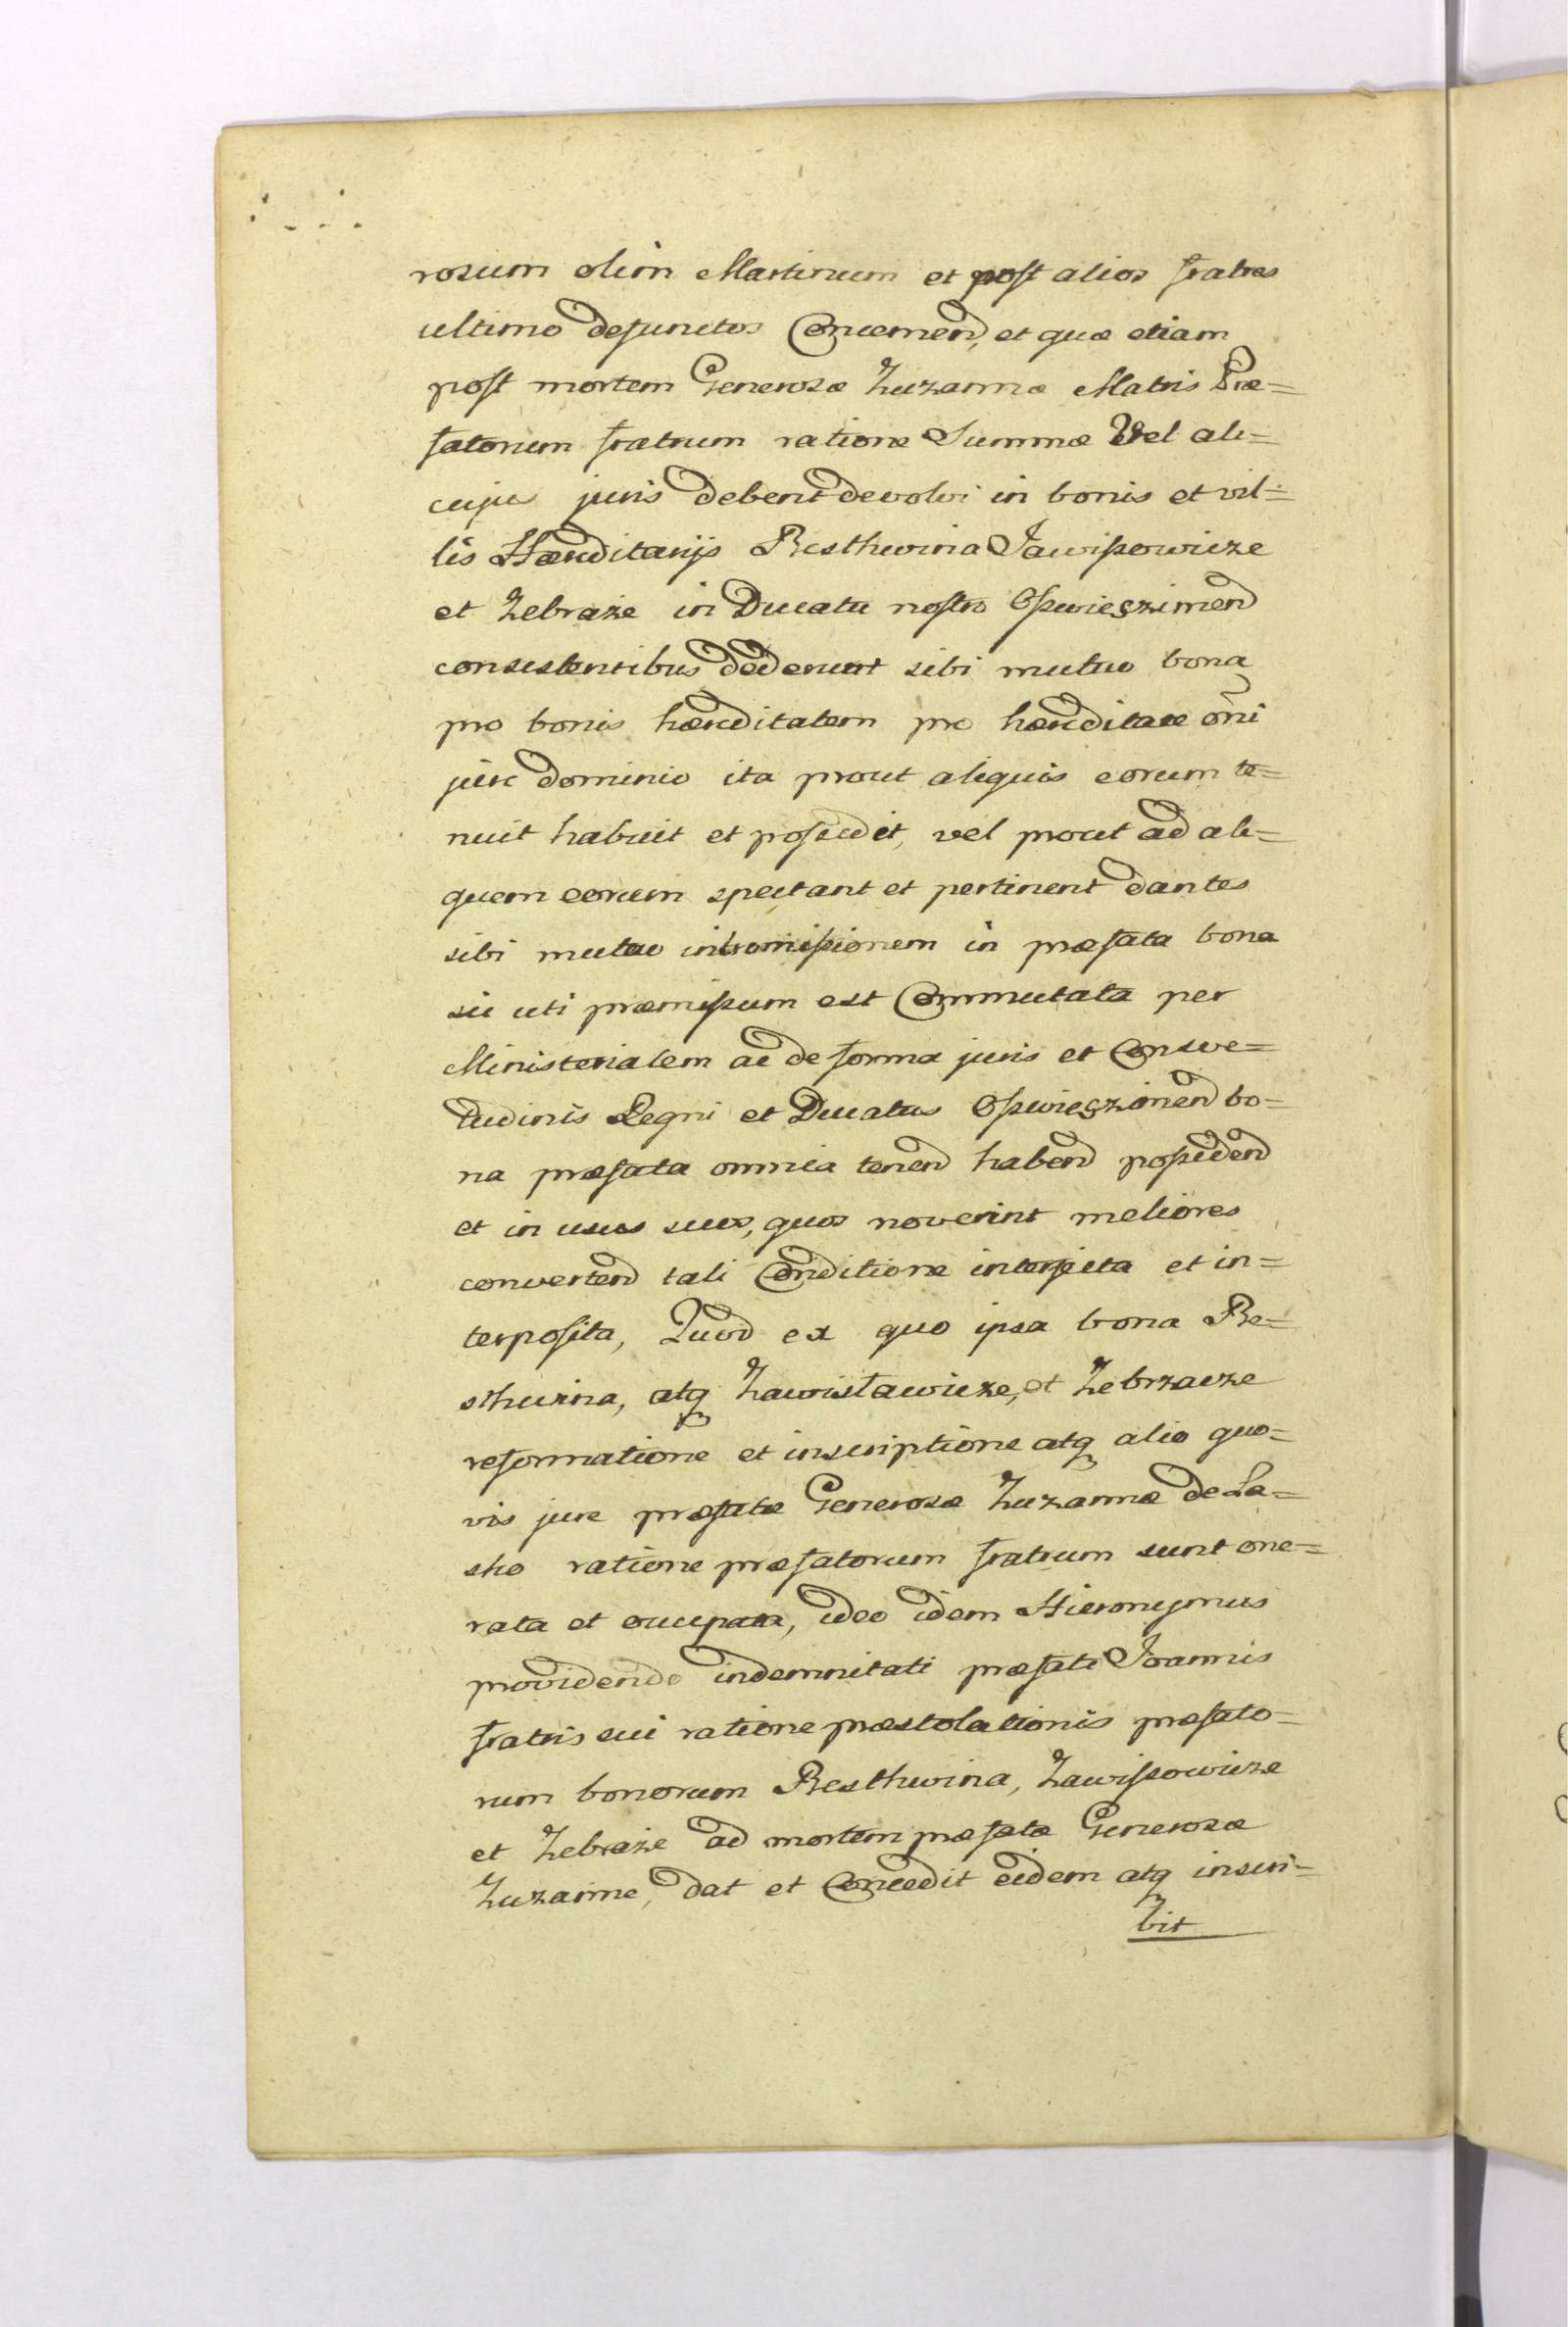 rosum olim Martinum et post alios fratres
ultimo defunctos Concernend, et quæ etiam
post mortem Generosæ Zuzannæ Matris Præ=
fatorum fratrum ratione Summæ Vel ali=
cujus juris debent devolvi in bonis et vil=
lis Hæreditarijs Besthwina Jawiszowicze
et Zebraze in Ducatu nostro Osswięczimend
consistentibus dederunt sibi mutuo bona
pro bonis hæreditatem pro hæreditate oñi
jure dominio ita prout aliquis eorum te=
nuit habuit et possedit, vel prout ad ali=
quem eorum spectant et pertinent dantes
sibi mutuo intromissionem in præfata bona
sic uti præmissum est Commutata per
Ministerialem ac de forma juris et Consve=
tudinis Regni et Ducatus Osswięczimend bo=
na præfata omnia tenend habend possidend
et in usus suos, quos noverint meliores
convertend tali Conditione interjecta et in=
terposita, Quod ex quo ipsa bona Be=
sthwina, atq Zawisławicze, et Zebrzacze
reformatione et inscriptione atq alio quo=
vis jure præfatæ Generosæ Zuzannæ de La=
sko ratione præfatorum fratrum sunt one=
rata et occupata, ideo idem Hieronymus
providendo indemnitati præfati Joannis
fratris sui ratione præstolationis præfato=
rum bonorum Besthwina, Zawissowicze
et Zebraze ad mortem præfatæ Generosæ
Zuzanne, dat et Concedit eidem atq inscri=
bit